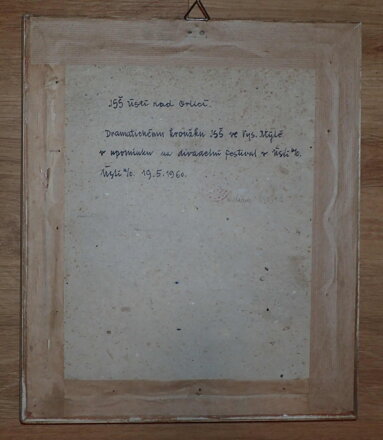 JSŠ Ústí nad Orlicí.
Dramatickému kroužku JSŠ ve Vys. Mýtě
v upomínku na divadelní festival v Ústí n/O.
Ústí n/O. 19.5.1960.